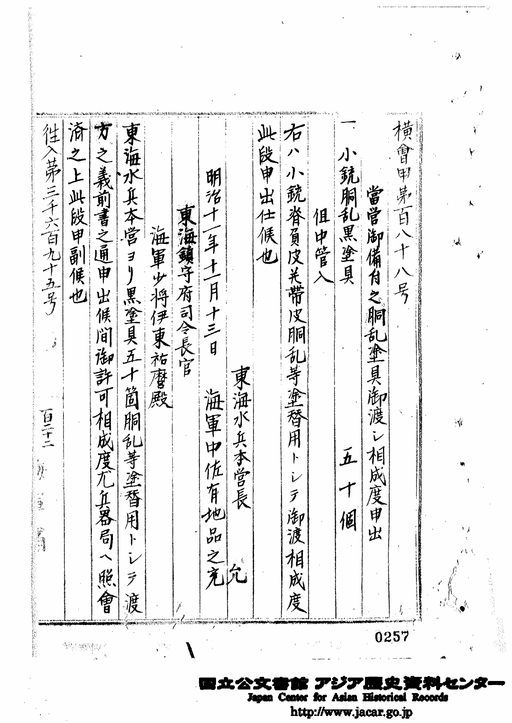 横會甲第百八十八号
當営御備付之胴乱塗具御渡シ相成度申出
一 小銃胴乱黒塗具 五十個
但中管入
右ハ小銃脊負皮并帯皮胴乱等塗替用トシテ御渡相成度
此段申出仕候也
東海水兵本営長
明治十一年十二月十三日 海軍中佐有地品之允
允
東海鎮守府司令長官
海軍少将伊東祐麿殿
東海水兵本営ヨリ黒塗具五十箇胴乱等塗替用トシテ渡
方之義前書之通申出候間御許可相成度尤兵器局ヘ照會
済之上此段申副候也
往入第三千六百九十五号
百二十二
0257
国立公文書館 アジア歴史資料センター
Japan Center for Asian Historical Records
http://www.jacar.go.jp